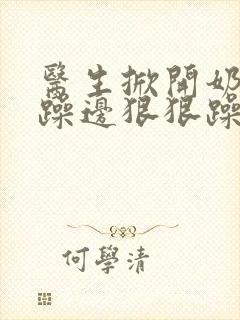 醫生掀開奶
躁邊狠狠躁
何學清